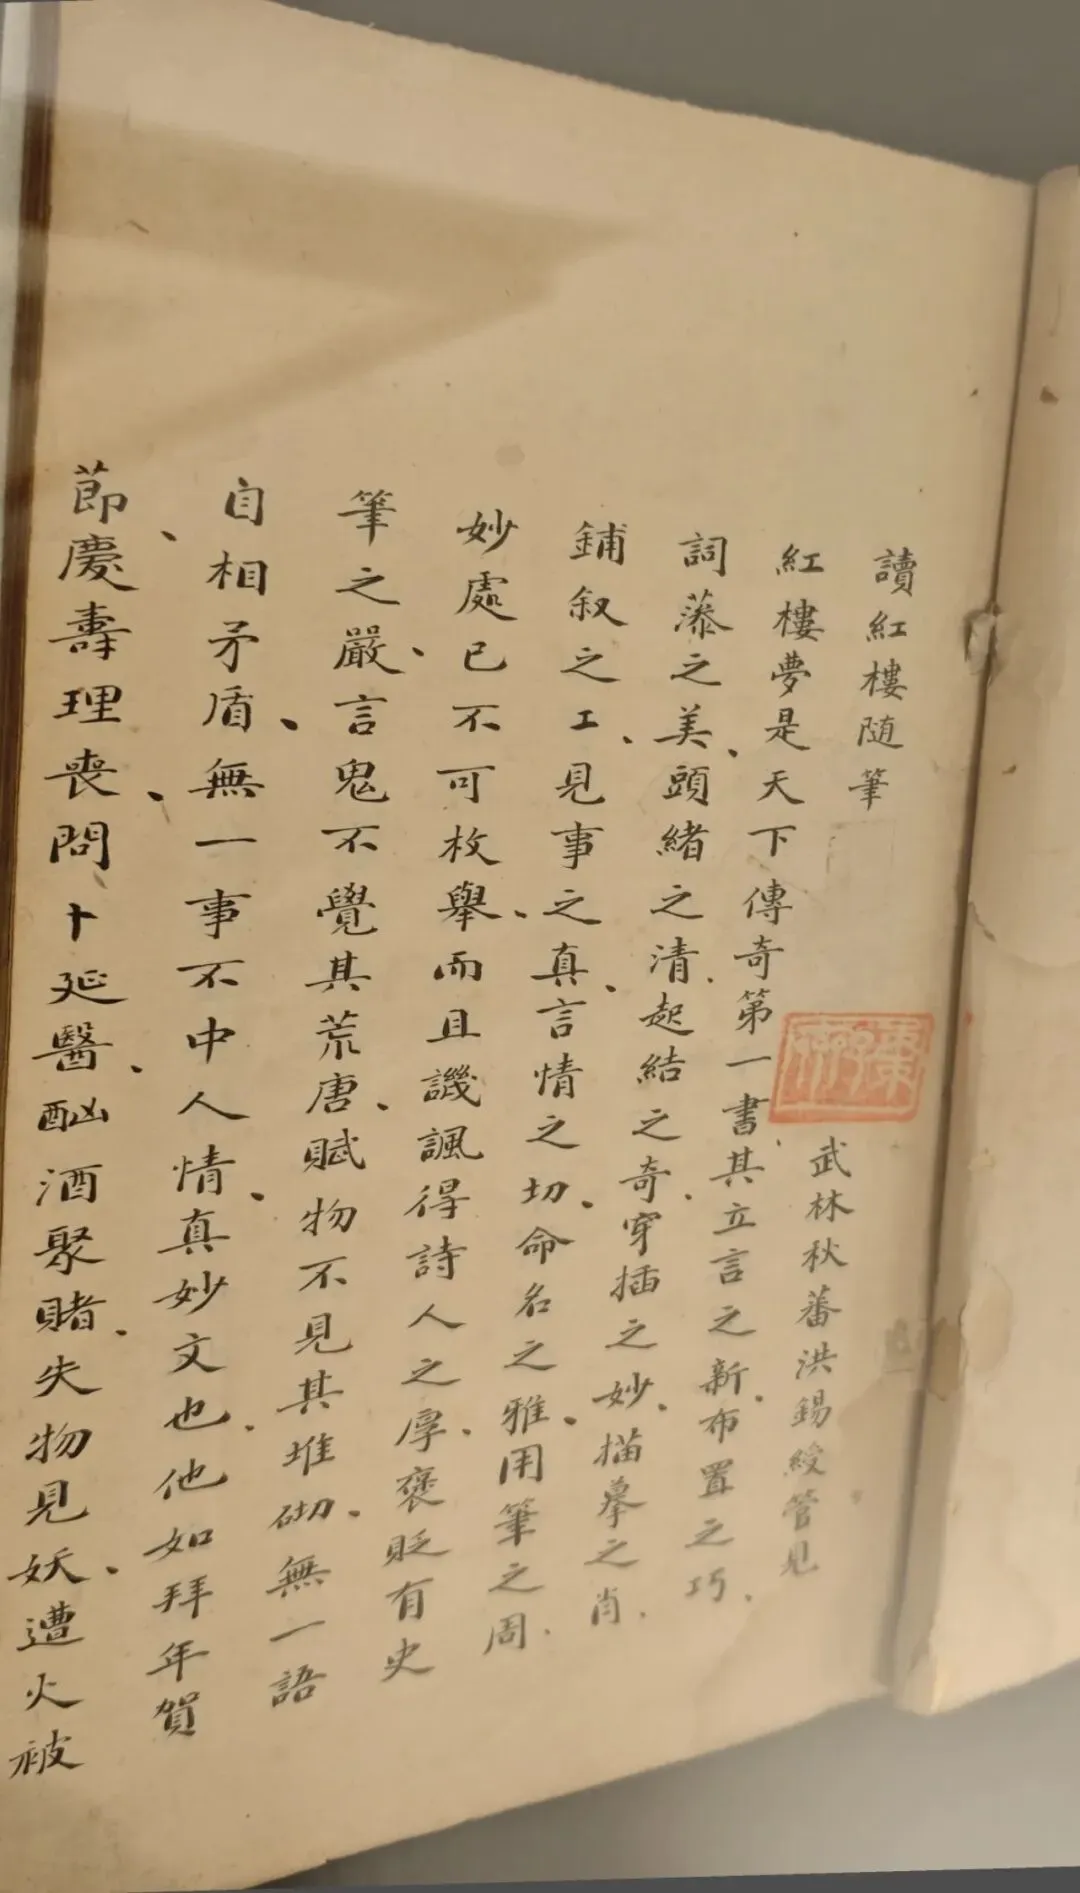 讀紅樓随筆
武林秋蕃洪錫綬管見
紅樓夢是天下傳奇第一書、其立言之新、布置之巧、
詞藻之美、頭緒之清、起結之奇、穿插之妙、描摹之肖、
鋪叙之工、見事之真、言情之切、命名之雅、用筆之周、
妙處已不可枚舉、而且譏諷得詩人之厚、褒貶有史
筆之嚴、言鬼不覺其荒唐、賦物不見其堆砌、無一語
自相矛盾、無一事不中人情、真妙文也、他如拜年賀
節、慶壽理喪、問卜延醫、酗酒聚賭、失物見妖、遭火被